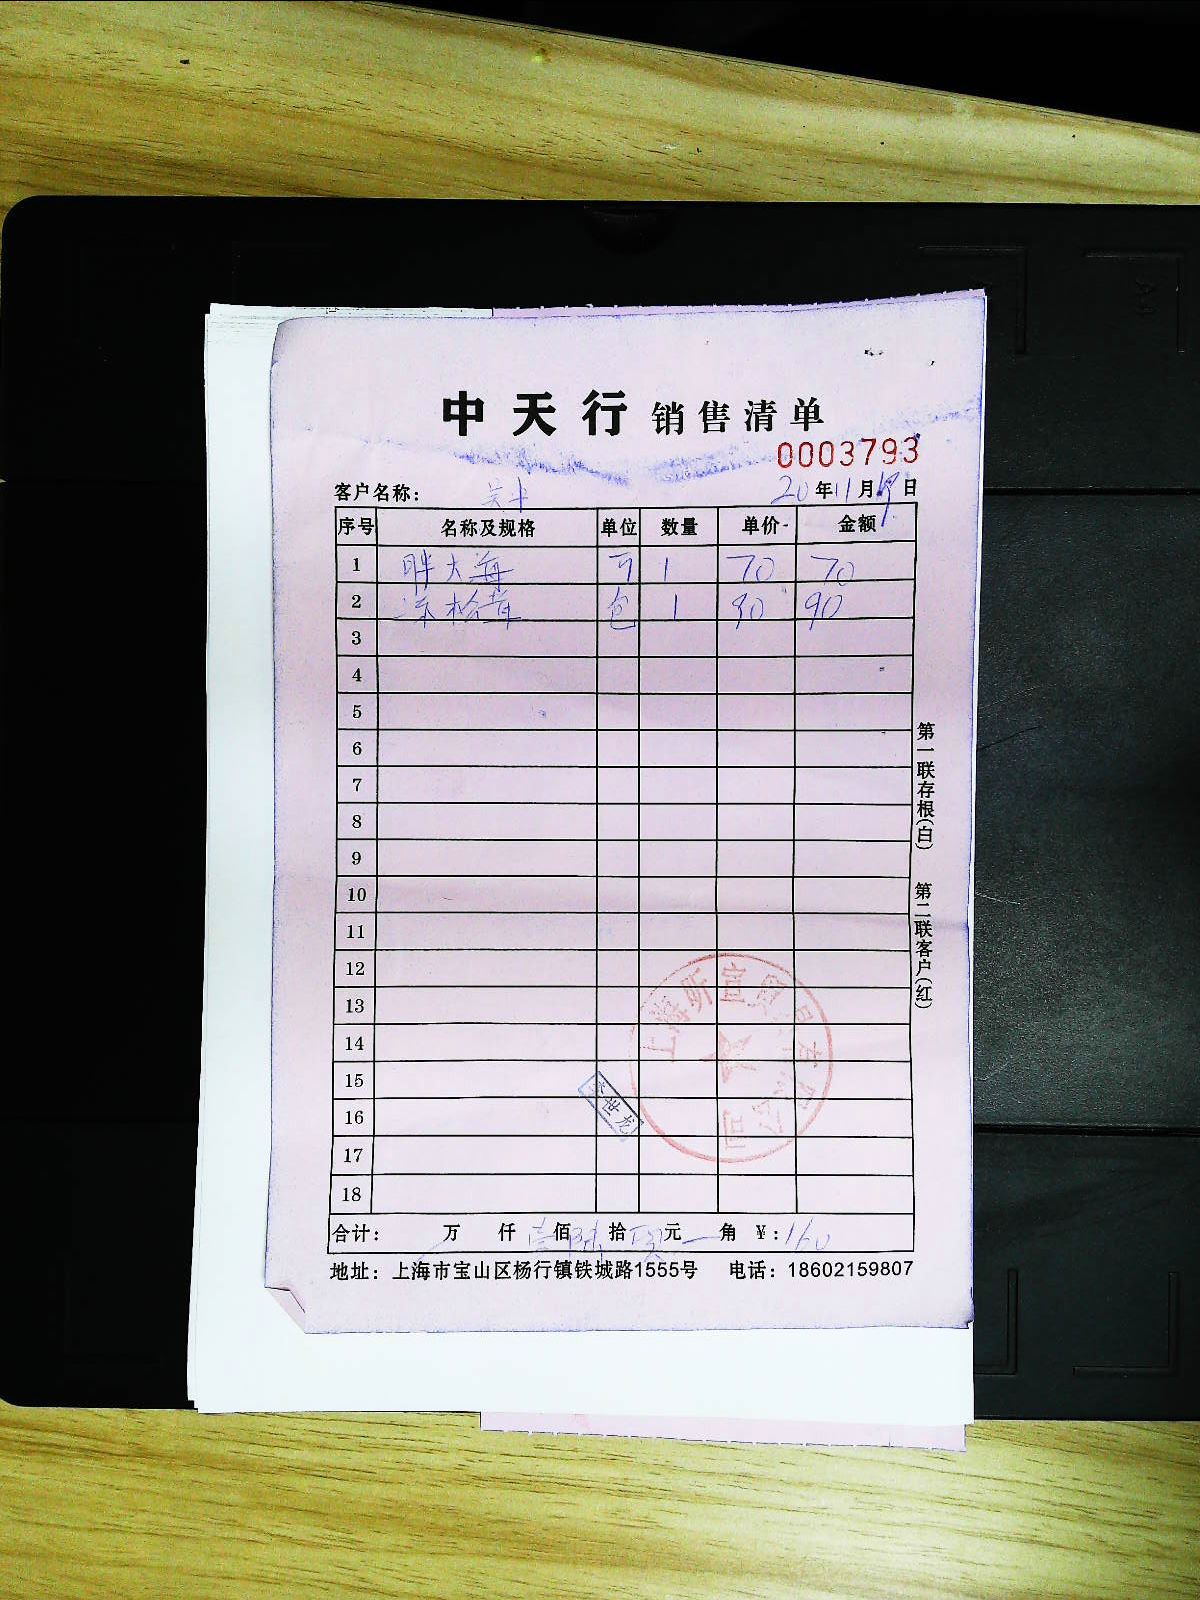 中天行 销售清单
0003793
客户名称:
20年11月19日
序号 名称及规格 单位 数量 单价 金额
1 胖大海 1 70 70
2 冻松茸 包 1 90 90
3
4
5
6
7
8
9
10
11
12
13
14
15
16
17
18
上海昕宜贸易有限公司
世龙
合计: 万 仟 壹 佰 陆 拾 元 角 ¥:160
地址:上海市宝山区杨行镇铁城路1555号 电话:18602159807
第一联存根(白) 第二联客户(红)